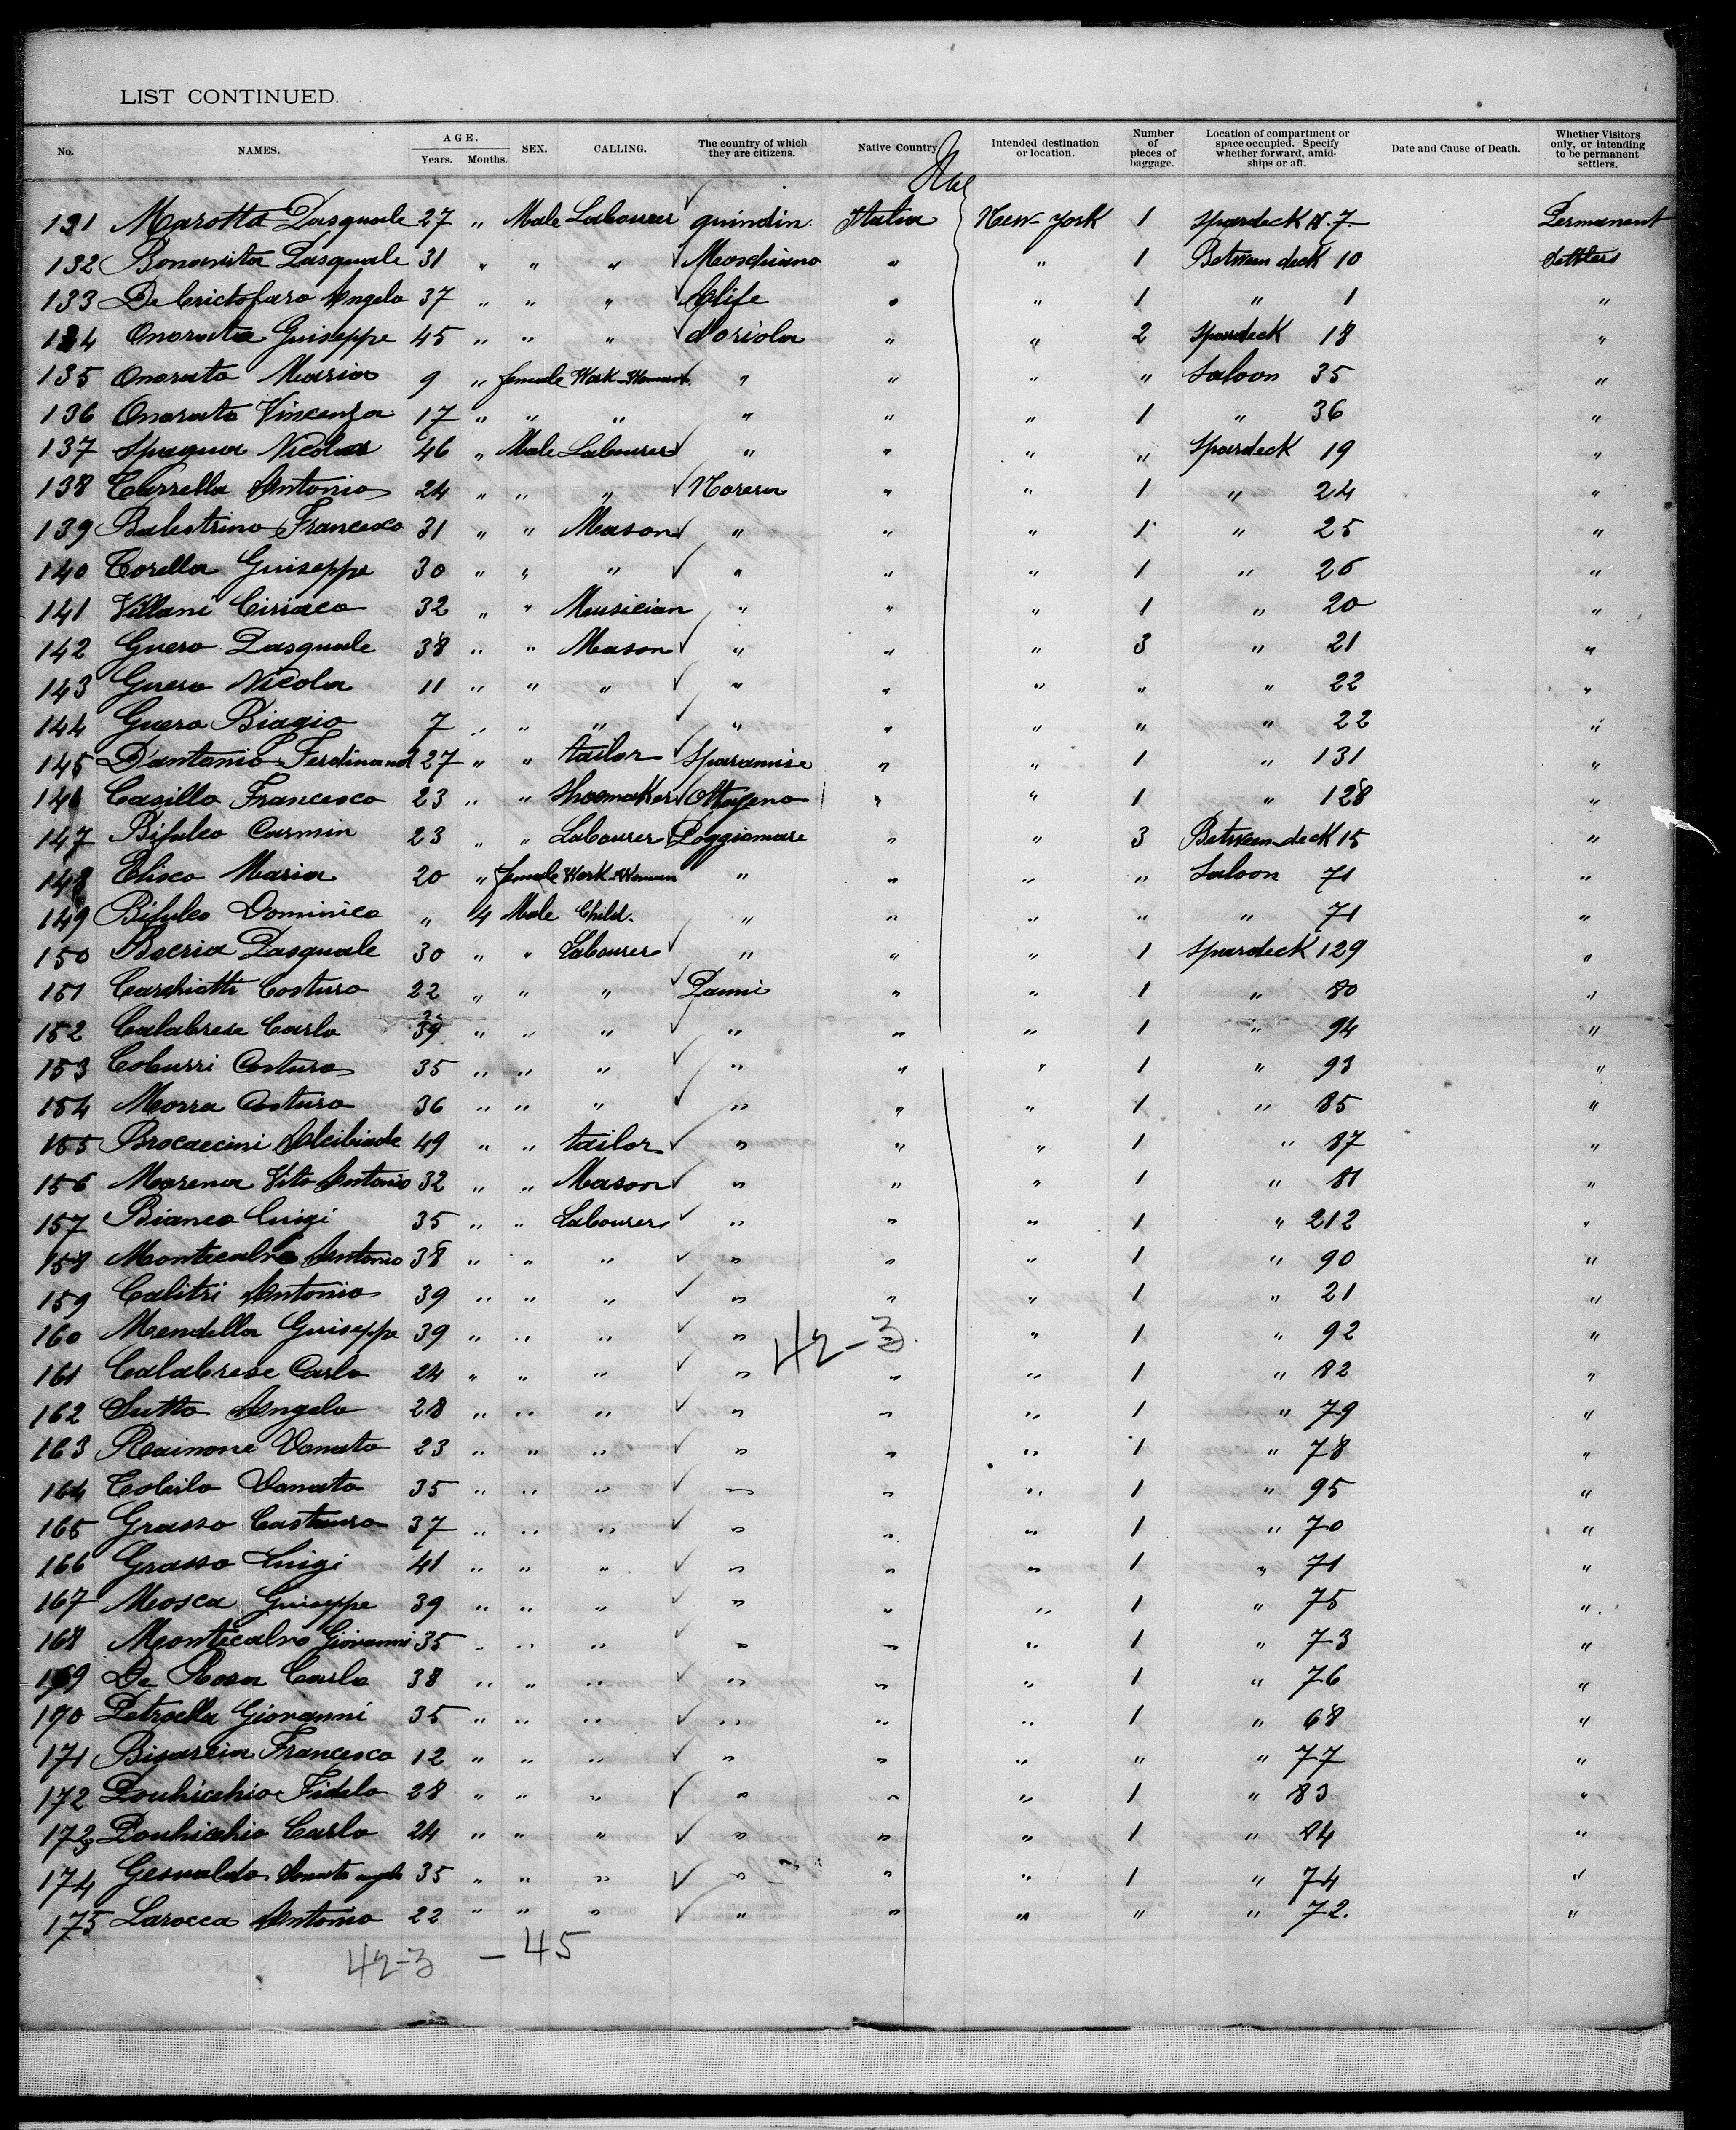 LIST CONTINUED.
No. NAMES. AGE. Years. Months. SEX. CALLING. The country of which they are citizens. Native Country Intended destination or location. Number of pieces of baggage. Location of compartment or space occupied. Specify whether forward, amidships or aft. Date and Cause of Death. Whether Visitors only, or intending to be permanent settlers.
131 Marotta Pasquale 27 " Male Labourer quindin. Italia New-York 1 Spardeck N. 7 Permanent
132 Bonanita Pasquale 31 " " " Moschiano " " 1 Between deck 10 Settlers
133 De Cristofaro Angelo 37 " " " Alife " " 1 " 1 "
134 Onorato Guiseppe 45 " " " doriola " " 2 Spardeck 18 "
135 Onorato Maria 9 " female Work-Woman " " " " Saloon 35 "
136 Onorato Vincenza 17 " " " " " " 1 " 36 "
137 Spagna Nicola 46 " Male Labourer " " " " Spardeck 19 "
138 Carrella Antonio 24 " " " Nocera " " 1 " 24 "
139 Balestrino Francesco 31 " " Mason " " " 1 " 25 "
140 Torella Guiseppe 30 " " " " " " 1 " 26 "
141 Villani Ciriaco 32 " " Musician " " " 1 " 20 "
142 Guero Pasquale 38 " " Mason " " " 3 " 21 "
143 Guero Nicola 11 " " " " " " " " 22 "
144 Guero Biagio 7 " " " " " " " " 22 "
145 D'antonio Ferdinand 27 " " tailor Sparamise " " 1 " 131 "
146 Casillo Francesco 23 " " Shoemaker Ottajeno " " 1 " 128 "
147 Bifulco Carmin 23 " " Labourer Poggiomare " " 3 Between-deck 15 "
148 Elisco Maria 20 " female Work-Woman " " " " Saloon 71 "
149 Bifulco Dominico " 4 Male Child. " " " " " 71 "
150 Pasquale 30 " " Labourer " " " 1 Spardeck 129 "
151 Carchiotti Costuro 22 " " " Panni " " 1 " 80 "
152 Calabrese Carlo 39 " " " " " " 1 " 94 "
153 Coburri Costuro 35 " " " " " " 1 " 93 "
154 Morra Costuro 36 " " " " " " 1 " 85 "
155 Brocaccini Alcibiade 49 " " tailor " " " 1 " 87 "
156 Marena Vito Antonio 32 " " Mason " " " 1 " 81 "
157 Bianco Luigi 35 " " Labourer " " " 1 " 212 "
158 Montecalvo Antonio 38 " " " " " " 1 " 90 "
159 Calitri Antonio 39 " " " " " " 1 " 21 "
160 Mendella Guiseppe 39 " " " " 42-3. " " 1 " 92 "
161 Calabrese Carlo 24 " " " " " " 1 " 82 "
162 Sutto Angelo 28 " " " " " " 1 " 79 "
163 Rainone Donato 23 " " " " " " 1 " 78 "
164 Donato 35 " " " " " " 1 " 95 "
165 Grasso Castauro 37 " " " " " " 1 " 70 "
166 Grasso Luigi 41 " " " " " " 1 " 71 "
167 Mosca Guiseppe 39 " " " " " " 1 " 75 "
168 Montecalvo Giovanni 35 " " " " " " 1 " 73 "
169 De Rosa Carlo 38 " " " " " " 1 " 76 "
170 Petrella Giovanni 35 " " " " " " 1 " 68 "
171 Bisarcia Francesco 12 " " " " " " " " 77 "
172 Fidelo 28 " " " " " " 1 " 83 "
173 Carlo 24 " " " " " " 1 " 84 "
174 Gesualdo Donato angelo 35 " " " " " " 1 " 74 "
175 Larocca Antonio 22 " " " " " " " " 72. "
42-3 - 45